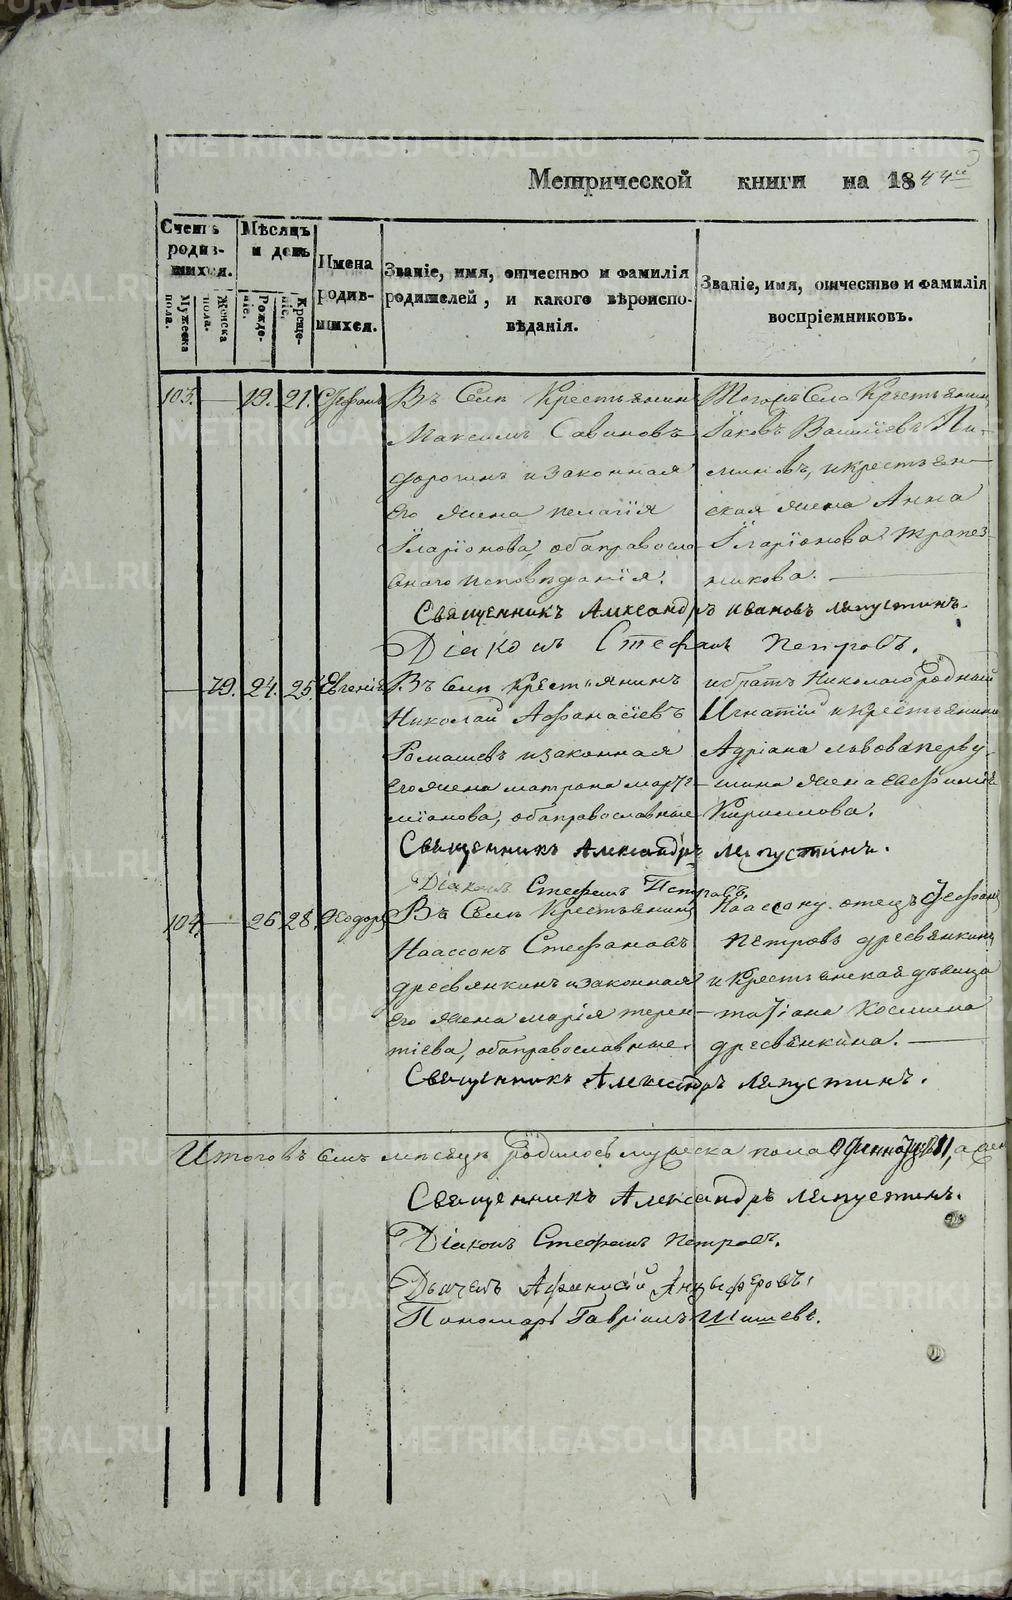 METRIKI.GASO-URAL.RU
Метрической книги на 1844й
Счетъ родив-шихся.
Мужеска пола.
Женска пола.
Мѣсяцъ и день
Рожде-ніе.
Креще-ніе.
Имена родив-шихся.
Званіе, имя, отчество и фамилія
родителей, и какого вѣроиспо-
вѣданія.
Званіе, имя, отчество и фамилія
воспріемниковъ.
103. 19. 21. Стефанъ
Въ Селѣ Крестьянинъ
Максимъ Савиновъ
и законная
его жена пелагія
Іларіонова, оба православ-
наго исповѣданія.
Тогожъ Села Крестьянинъ
Іаковъ Василіевъ Пи-
миновъ, и крестьян-
ская жена Анна
Іларіонова трапез-
никова.
Священникъ Александръ Ивановъ Ляпустинъ.
Діаконъ Стефанъ Петровъ.
79. 24. 25. Евгенія
Въ Селѣ Крестьянинъ
Николай Афанасіевъ
Ромашевъ и законная
его жена матрона марті-
міанова, оба православные
и братъ Николаю родный
Игнатій и крестьянина
Адріана львова перву-
шина жена евфимія
Кириллова.
Священникъ Александръ Ляпустинъ.
Діаконъ Стефанъ Петровъ.
104. 26 28. Ѳеодоръ
Въ Селѣ Крестьянинъ
Наассонъ Стефановъ
дресвянкинъ и законная
его жена марія терен-
тіева, оба православные.
Наассону отецъ Стефанъ
Петровъ дресвянкинъ
и крестьянская дѣвица
татіана Космина
дресвянкина.
Священникъ Александръ Ляпустинъ.
Итого въ семъ мѣсяцѣ родилось мужеска пола 11, а жен
Священникъ Александръ Ляпустинъ.
Діаконъ Стефанъ Петровъ.
Дьячекъ Афанасій Анцыферовъ.
Пономарь Гавріилъ Шишевъ.